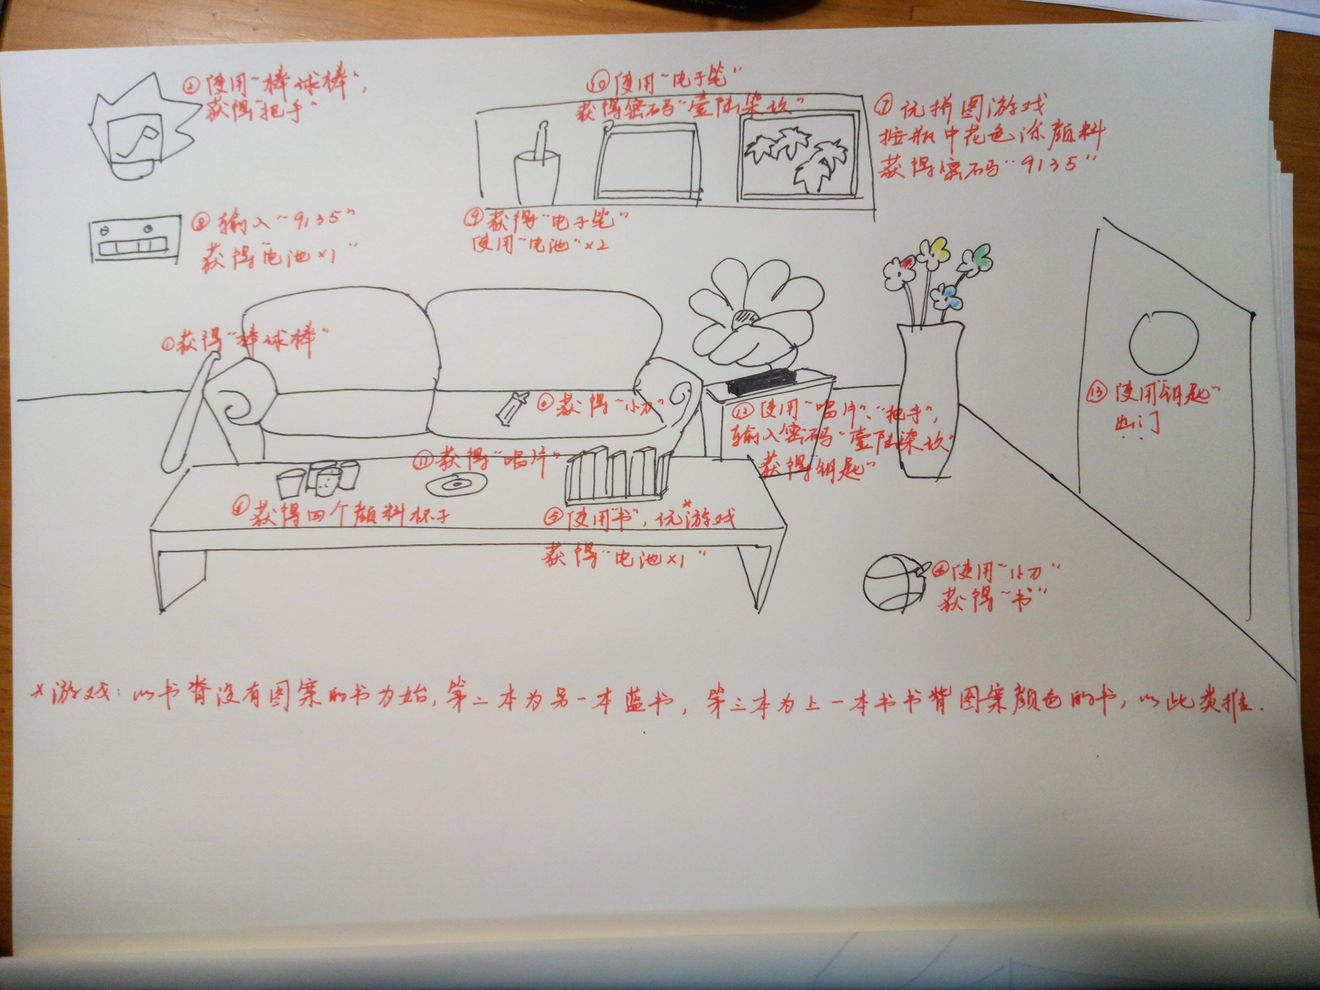 ②使用“棒球棒”，
获得“把手”
⑩使用“电子笔”
获得密码“壹陆柒玖”
⑦玩拼图游戏
按瓶中花色涂颜料
获得密码“9135”
⑧输入“9135”
获得“电池×1”
⑨获得“电子笔”
使用“电池”×2
①获得“棒球棒”
③获得“小刀”
⑬使用“钥匙”
出门
⑫使用“唱片”、“把手”，
输入密码“壹陆柒玖”
获得“钥匙”
⑪获得“唱片”
⑥获得四个颜料杯子
⑤使用“书”，玩*游戏
获得“电池×1”
④使用“小刀”
获得“书”
*游戏：以书脊没有图案的书为始，第二本为另一本蓝书，第三本为上一本书书背图案颜色的书，以此类推．